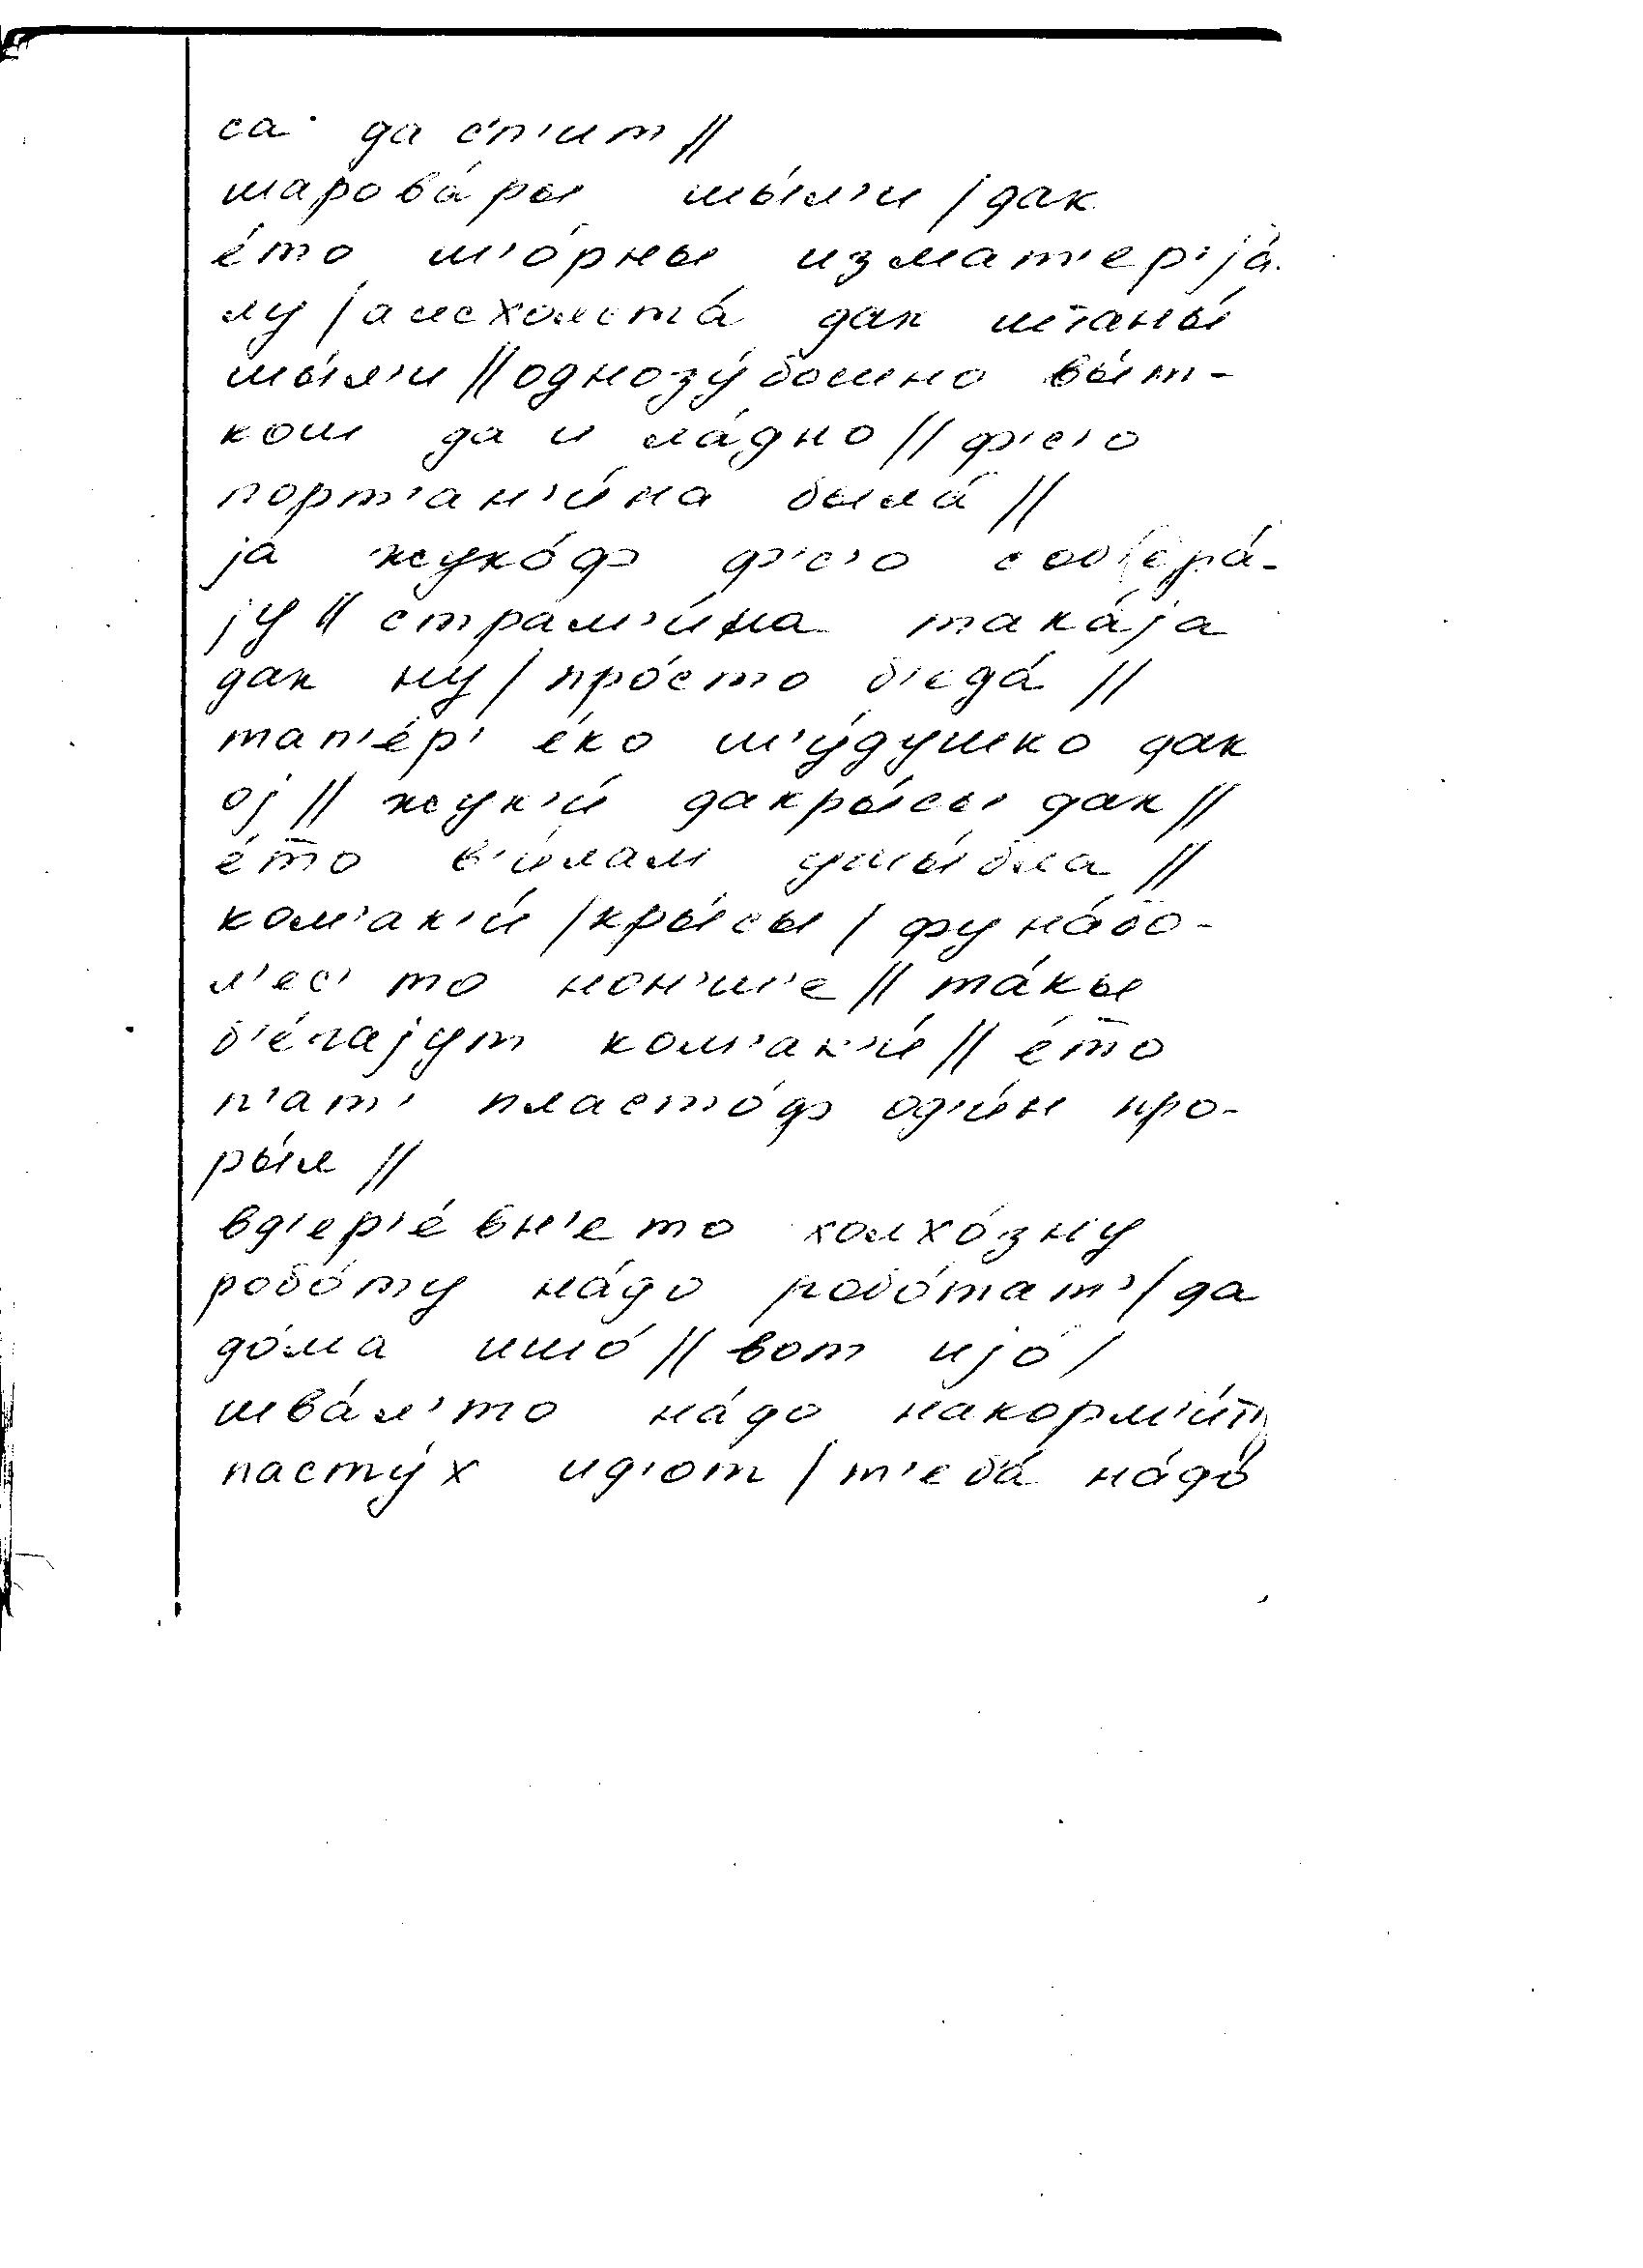 са да с'п'ит //
шарова́ры шы́л'и / дак
е́то ш'о́рны измат'ер'jа́-
лу / аисхолста́ дак штаны́
шы́л'и // однозу́бошно вы́т-
кош да и ла́дно // ф'с'о
порт'ан'и́на была́ //
jа жуко́ф ф'с'о соб'ера́-
jу // страм'и́на така́jа
дак ну́ / про́сто б'еда́ //
тап'е́р' е́ко ш'у́душко дак
оj // жук'и́ дакры́сы дак //
е́то в'и́лам ушы́бла //
ком'ак'и́ / кры́сы / фу на́бо-
л'ес' то нон'ш'е // та́кы
б'е́гаjут ком'ак'и́ // е́то
п'ат' пласто́ф од'и́н про-
ры́л //
вд'ер'е́вн'ето колхо́зну
робо́ту на́до робо́тат' / да
до́ма ишо́ // вот иjо́ /
шва́л'то на́до накорм'и́т'
пасту́х ид'от / т'еб'а́ на́до